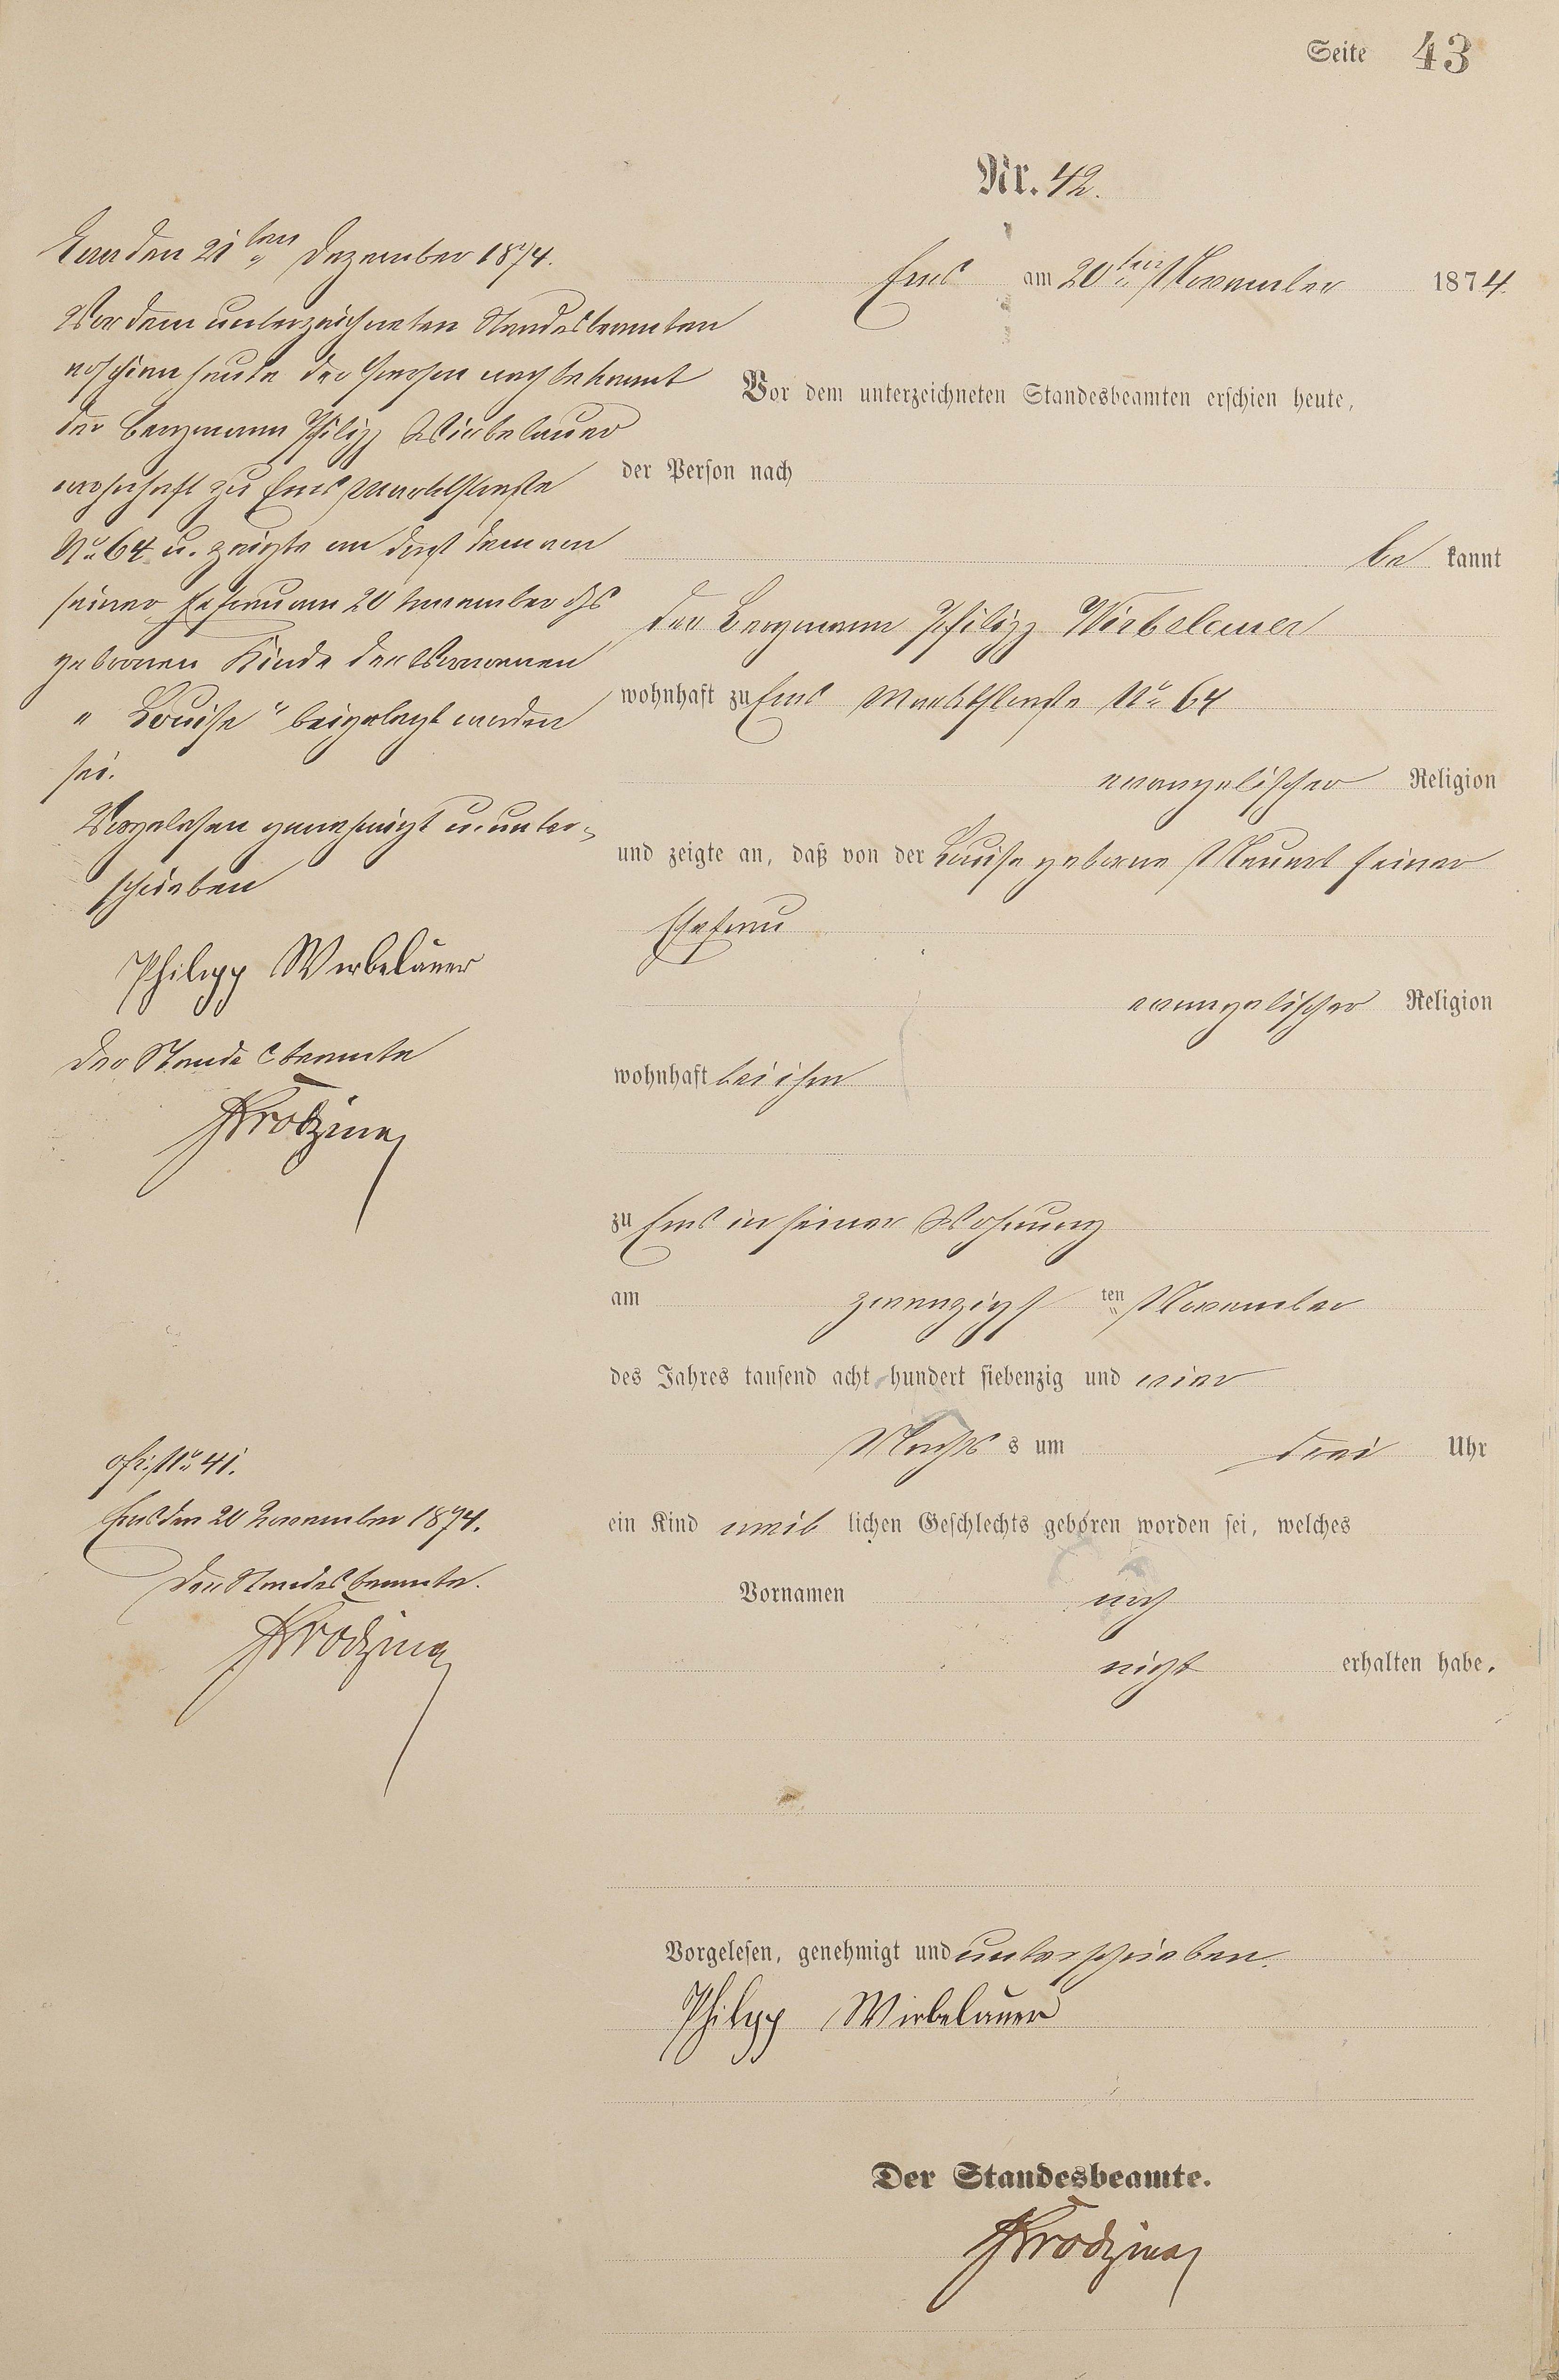 Seite 43
Nr. 42.
Ems den 21ten Dezember 1874.
Vor dem unterzeichneten Standesbeamten
erschien heute der Person nach bekannt
der Bergmann Philipp Wirbelauer
wohnhaft zu Ems Marktstraße
No 64 u. zeigte an daß dem von
seiner Ehefrau am 20 November ds Js
gebornen Kinde der Vornamen
"Louise" beigelegt worden
sei.
Vorgelesen genehmigt u. unter-
schrieben
Philipp Wirbelauer
Der Standesbeamte
ofr. No 41.
Ems den 20 November 1874.
Der Standesbeamte.
Ems am 20ten November 1874.
Vor dem unterzeichneten Standesbeamten erschien heute,
der Person nach
be kannt
der Bergmann Philipp Wirbelauer
wohnhaft zu Ems Marktstraße No 64
evangelischer Religion
und zeigte an, daß von der Louise geborne seiner
Ehefrau
evangelischer Religion
wohnhaft bei ihm
zu Ems in seiner Wohnung
am zwanzigsten November
des Jahres tausend acht hundert siebenzig und vier
Nachts s um drei Uhr
ein Kind weib lichen Geschlechts geboren worden sei, welches
Vornamen noch
nicht erhalten habe.
Vorgelesen, genehmigt und unterschrieben.
Philipp Wirbelauer
Der Standesbeamte.